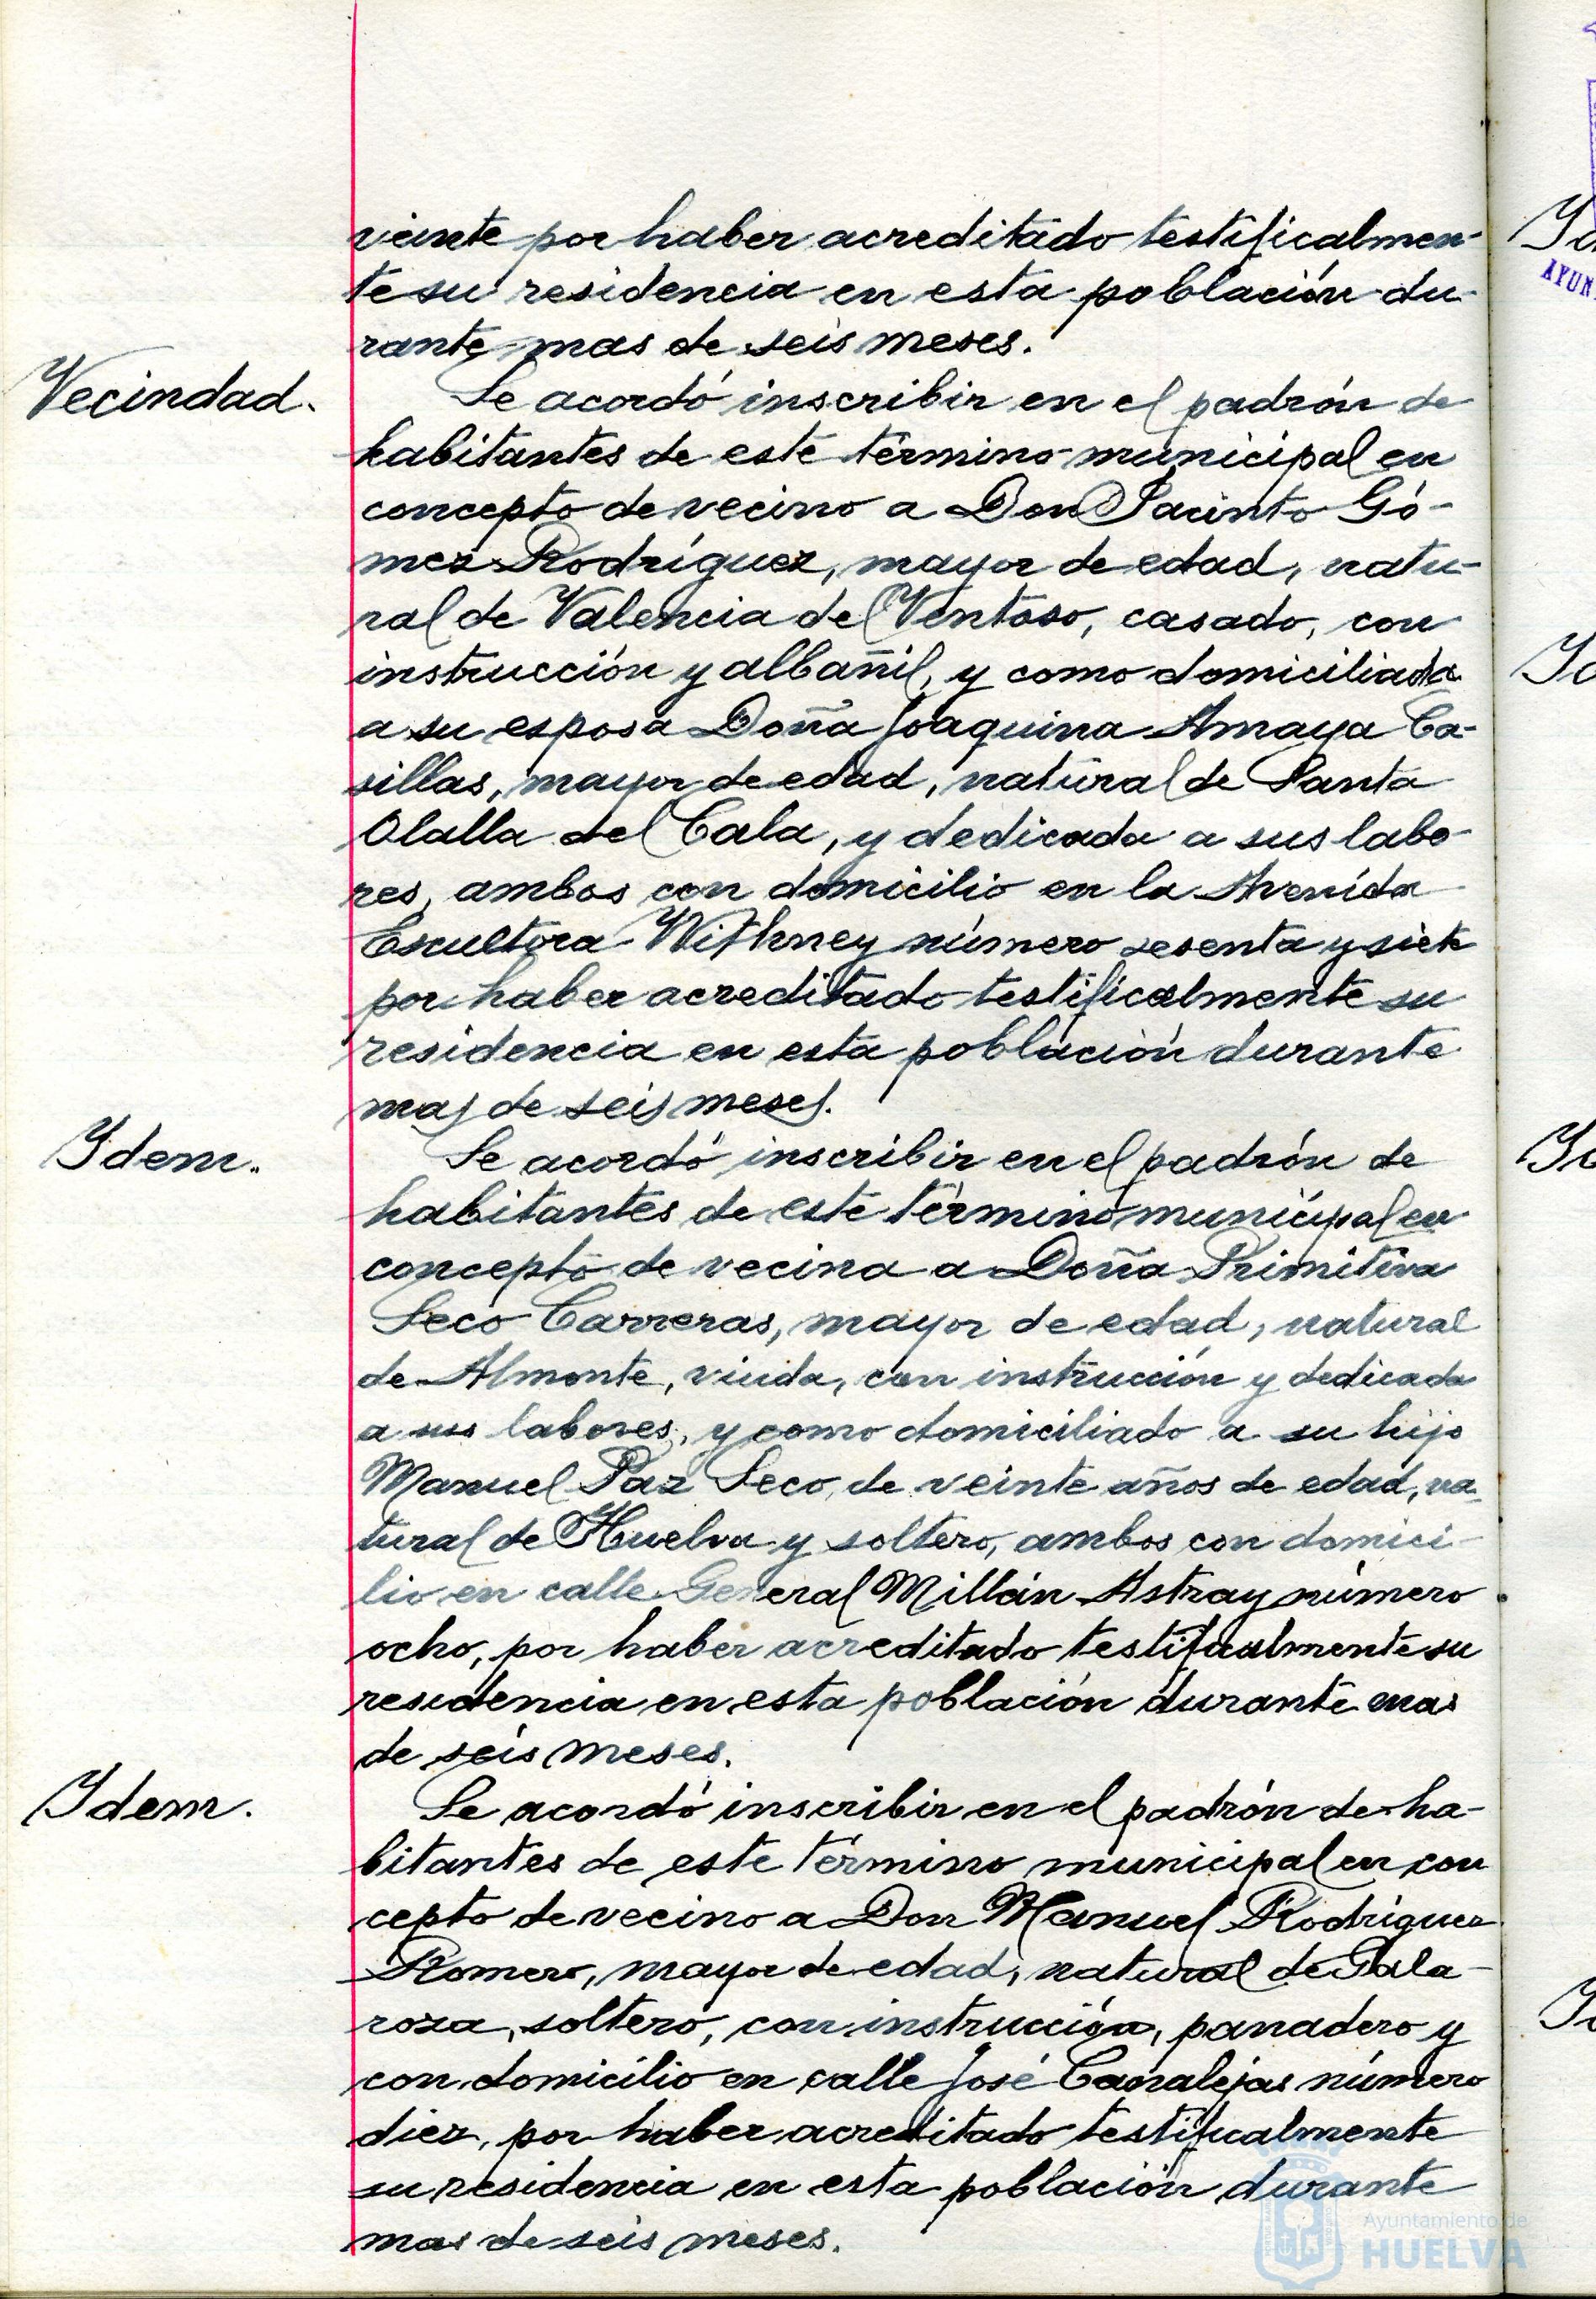 veinte por haber acreditado testificalmen-
te su residencia en esta población du-
rante mas de seis meses.
Vecindad.
Se acordó inscribir en el padrón de
habitantes de este término municipal en
concepto de vecino a Don Jacinto Gó-
mez Rodríguez, mayor de edad, natu-
ral de Valencia del Ventoso, casado, con
instrucción y albañil, y como domiciliada
a su esposa Doña Joaquina Amaya Ca-
sillas, mayor de edad, natural de Santa
Olalla del Cala, y dedicada a sus labo-
res, ambos con domicilio en la Avenida
Escultora Withney número sesenta y siete
por haber acreditado testificalmente su
residencia en esta población durante
mas de seis meses.
Idem.
Se acordó inscribir en el padrón de
habitantes de este término municipal en
concepto de vecina a Doña Primitiva
Seco Carreras, mayor de edad, natural
de Almonte, viuda, con instrucción y dedicada
a sus labores, y como domiciliado a su hijo
Manuel Paz Seco, de veinte años de edad, na-
tural de Huelva y soltero, ambos con domici-
lio en calle General Millán Astray número
ocho, por haber acreditado testificalmente su
residencia en esta población durante mas
de seis meses.
Idem.
Se acordó inscribir en el padrón de ha-
bitantes de este término municipal en con
cepto de vecino a Don Manuel Rodríguez
Romero, mayor de edad, natural de Gala-
roza, soltero, con instrucción, panadero y
con domicilio en calle José Canalejas número
diez, por haber acreditado testificalmente
su residencia en esta población durante
mas de seis meses.
AYUN
Ayuntamiento de
HUELVA